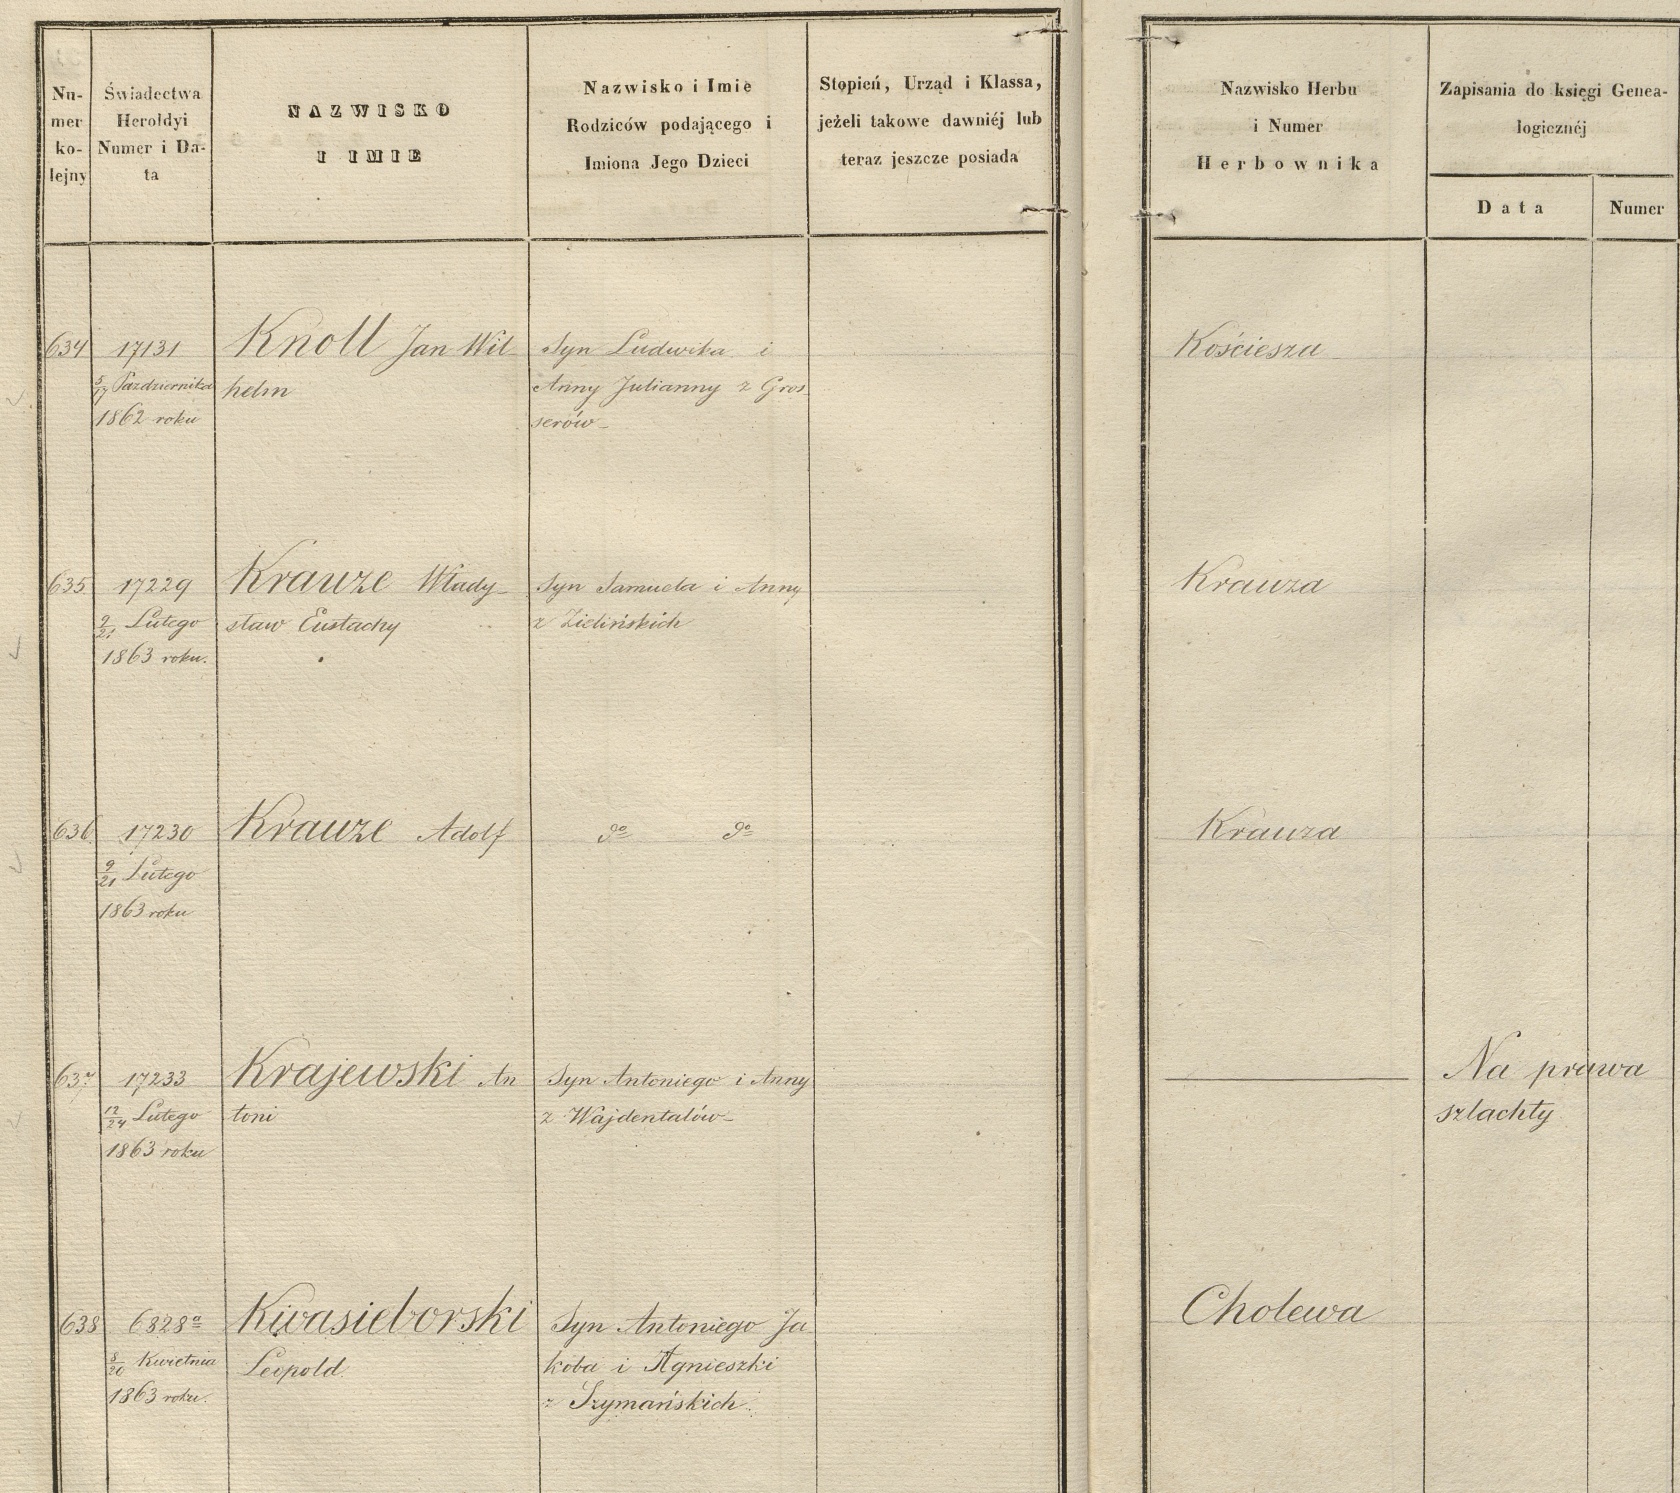 Nu-
mer
ko-
lejny
Świadectwa
Herołdyi
Numer i Da-
ta
NAZWISKO
I IMIE
Nazwisko i Imie
Rodziców podającego i
Imiona Jego Dzieci
Stopień, Urząd i Klassa,
jeżeli takowe dawniéj lub
teraz jeszcze posiada
Nazwisko Herbu
i Numer
Herbownika
Zapisania do księgi Genea-
logicznéj
Data
Numer
634
17131
5/17 Października
1862 roku
Knoll Jan Wil-
helm
Syn Ludwika i
Anny Julianny z Gros-
serów-
Kościesza
635
17229
9/21 Lutego
1863 roku.
Krauze Włady-
sław Eustachy
Syn Samuela i Anny
z Zielińskich
Krauza
636
17230
9/21 Lutego
1863 roku
Krauze Adolf
do do
Krauza
637
17233
12/24 Lutego
1863 roku
Krajewski An
toni
Syn Antoniego i Anny
z Wajdentalów-
Na prawa
szlachty
638
6828a
8/20 Kwietnia
1863 roku.
Kwasieborski
Leopold.
Syn Antoniego Ja
koba i Agnieszki
z Szymańskich.
Cholewa